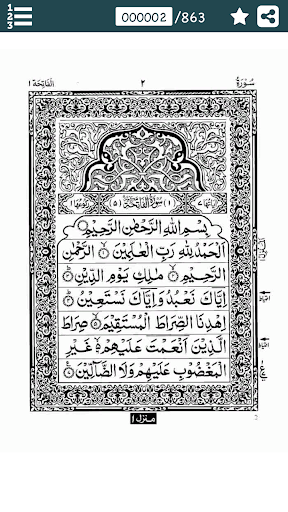 1
2
3
000002 /863
سُورَةُ ٢ اَلْفَاتِحَة ١
اٰیَاتُهَا ٧ (١) سُوْرَةُ الْفَاتِحَةِ (٥) رُکُوْعُهَا ١
بِسْمِ اللّٰهِ الرَّحْمٰنِ الرَّحِیْمِ
اَلْحَمْدُ لِلّٰهِ رَبِّ الْعٰلَمِیْنَ ۙ﴿١﴾ الرَّحْمٰنِ
الرَّحِیْمِ ۙ﴿٢﴾ مٰلِكِ یَوْمِ الدِّیْنِ ؕ﴿٣﴾
اِیَّاكَ نَعْبُدُ وَاِیَّاكَ نَسْتَعِیْنُ ؕ﴿٤﴾
اِهْدِنَا الصِّرَاطَ الْمُسْتَقِیْمَ ۙ﴿٥﴾ صِرَاطَ
الَّذِیْنَ اَنْعَمْتَ عَلَیْهِمْ ۙ۬﴿٦﴾ غَیْرِ
الْمَغْضُوْبِ عَلَیْهِمْ وَلَا الضَّآلِّیْنَ ﴿٧﴾
منزل ١